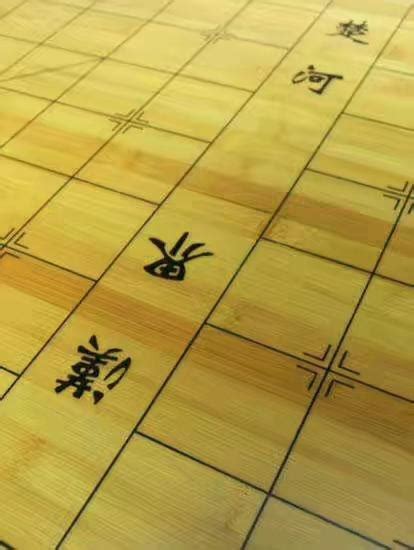 楚河
漢界